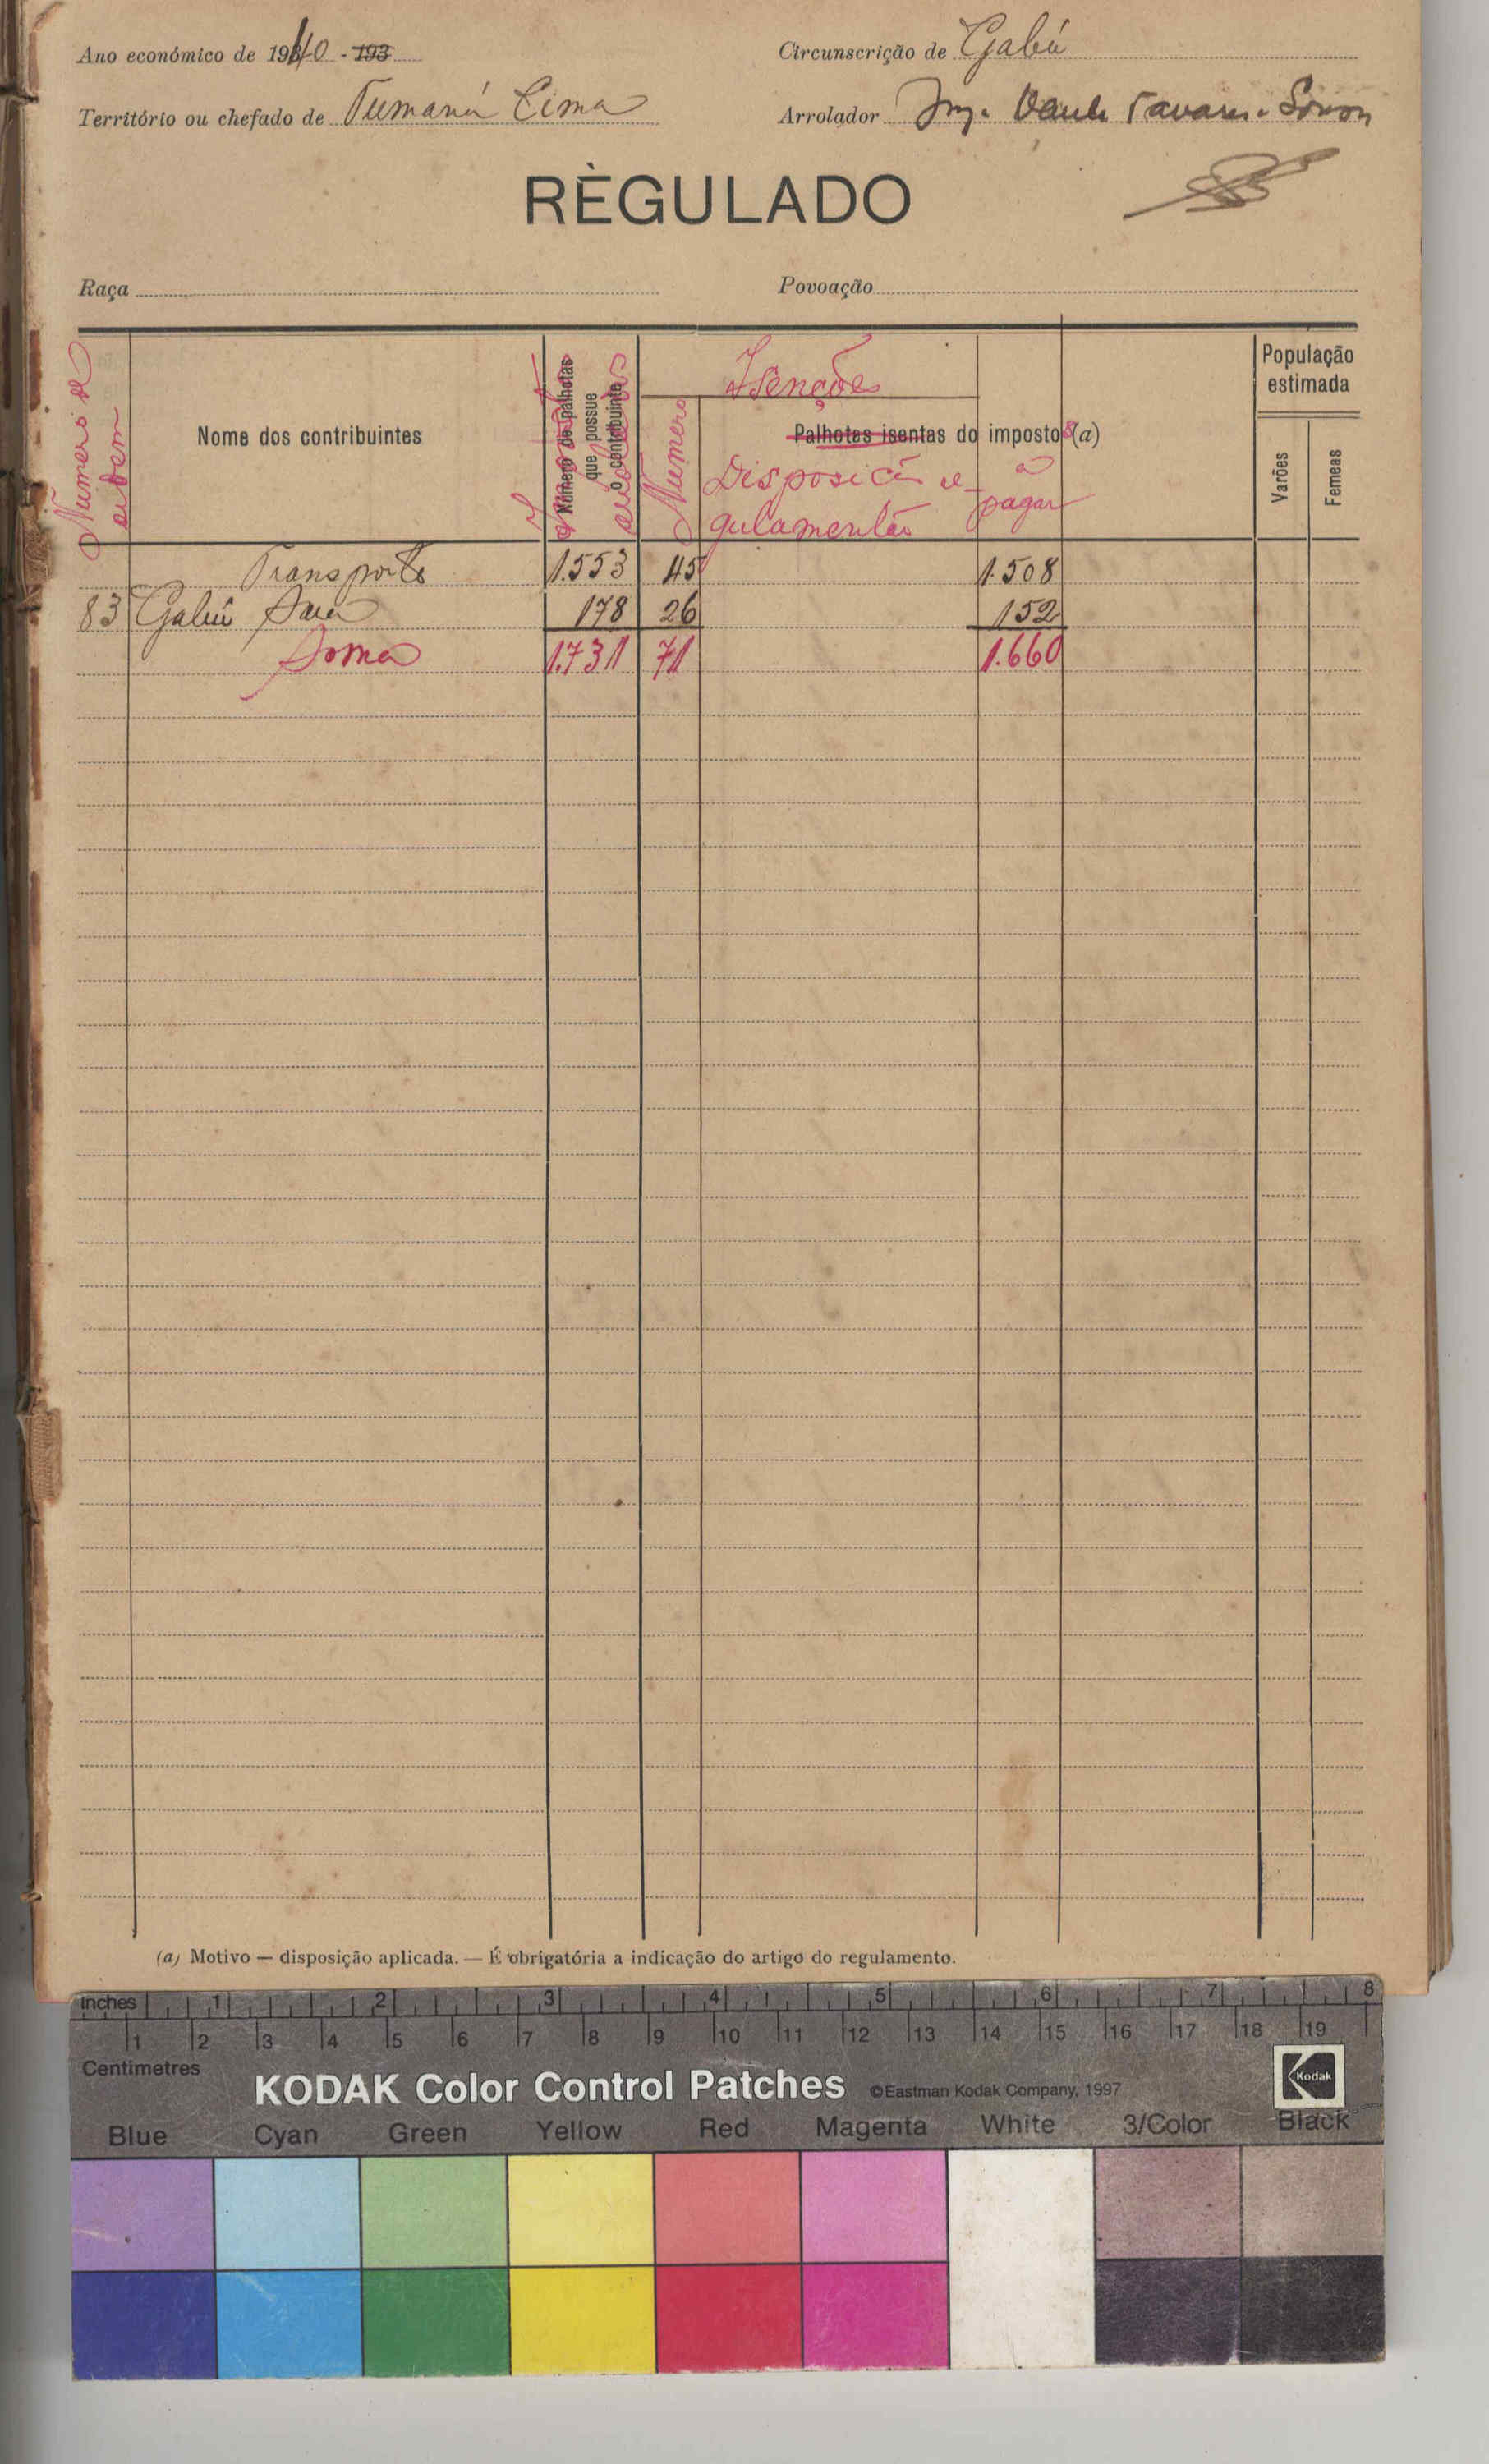 Ano económico de 1940 - 193
Circunscrição de Gabú
Território ou chefado de Tumaná Cima
Arrolador Tavares
RÈGULADO
Raça
Povoação
Número de ordem
Nome dos contribuintes
Número de palhotas que possue o contribuinte
Número
Isenções
Palhotas isentas do impostos (a)
Disposicão re-
gulamentão
á
pagar
População
estimada
Varões
Femeas
Transporte 1.553 45 1.508
83 Gabú Sara 178 26 152
Soma 1.731 71 1.660
(a) Motivo — disposição aplicada. — É obrigatória a indicação do artigo do regulamento.
inches 1 2 3 4 5 6 7 8
1 2 3 4 5 6 7 8 9 10 11 12 13 14 15 16 17 18 19
Centimetres
KODAK Color Control Patches ©Eastman Kodak Company, 1997 Kodak
Blue Cyan Green Yellow Red Magenta White 3/Color Black